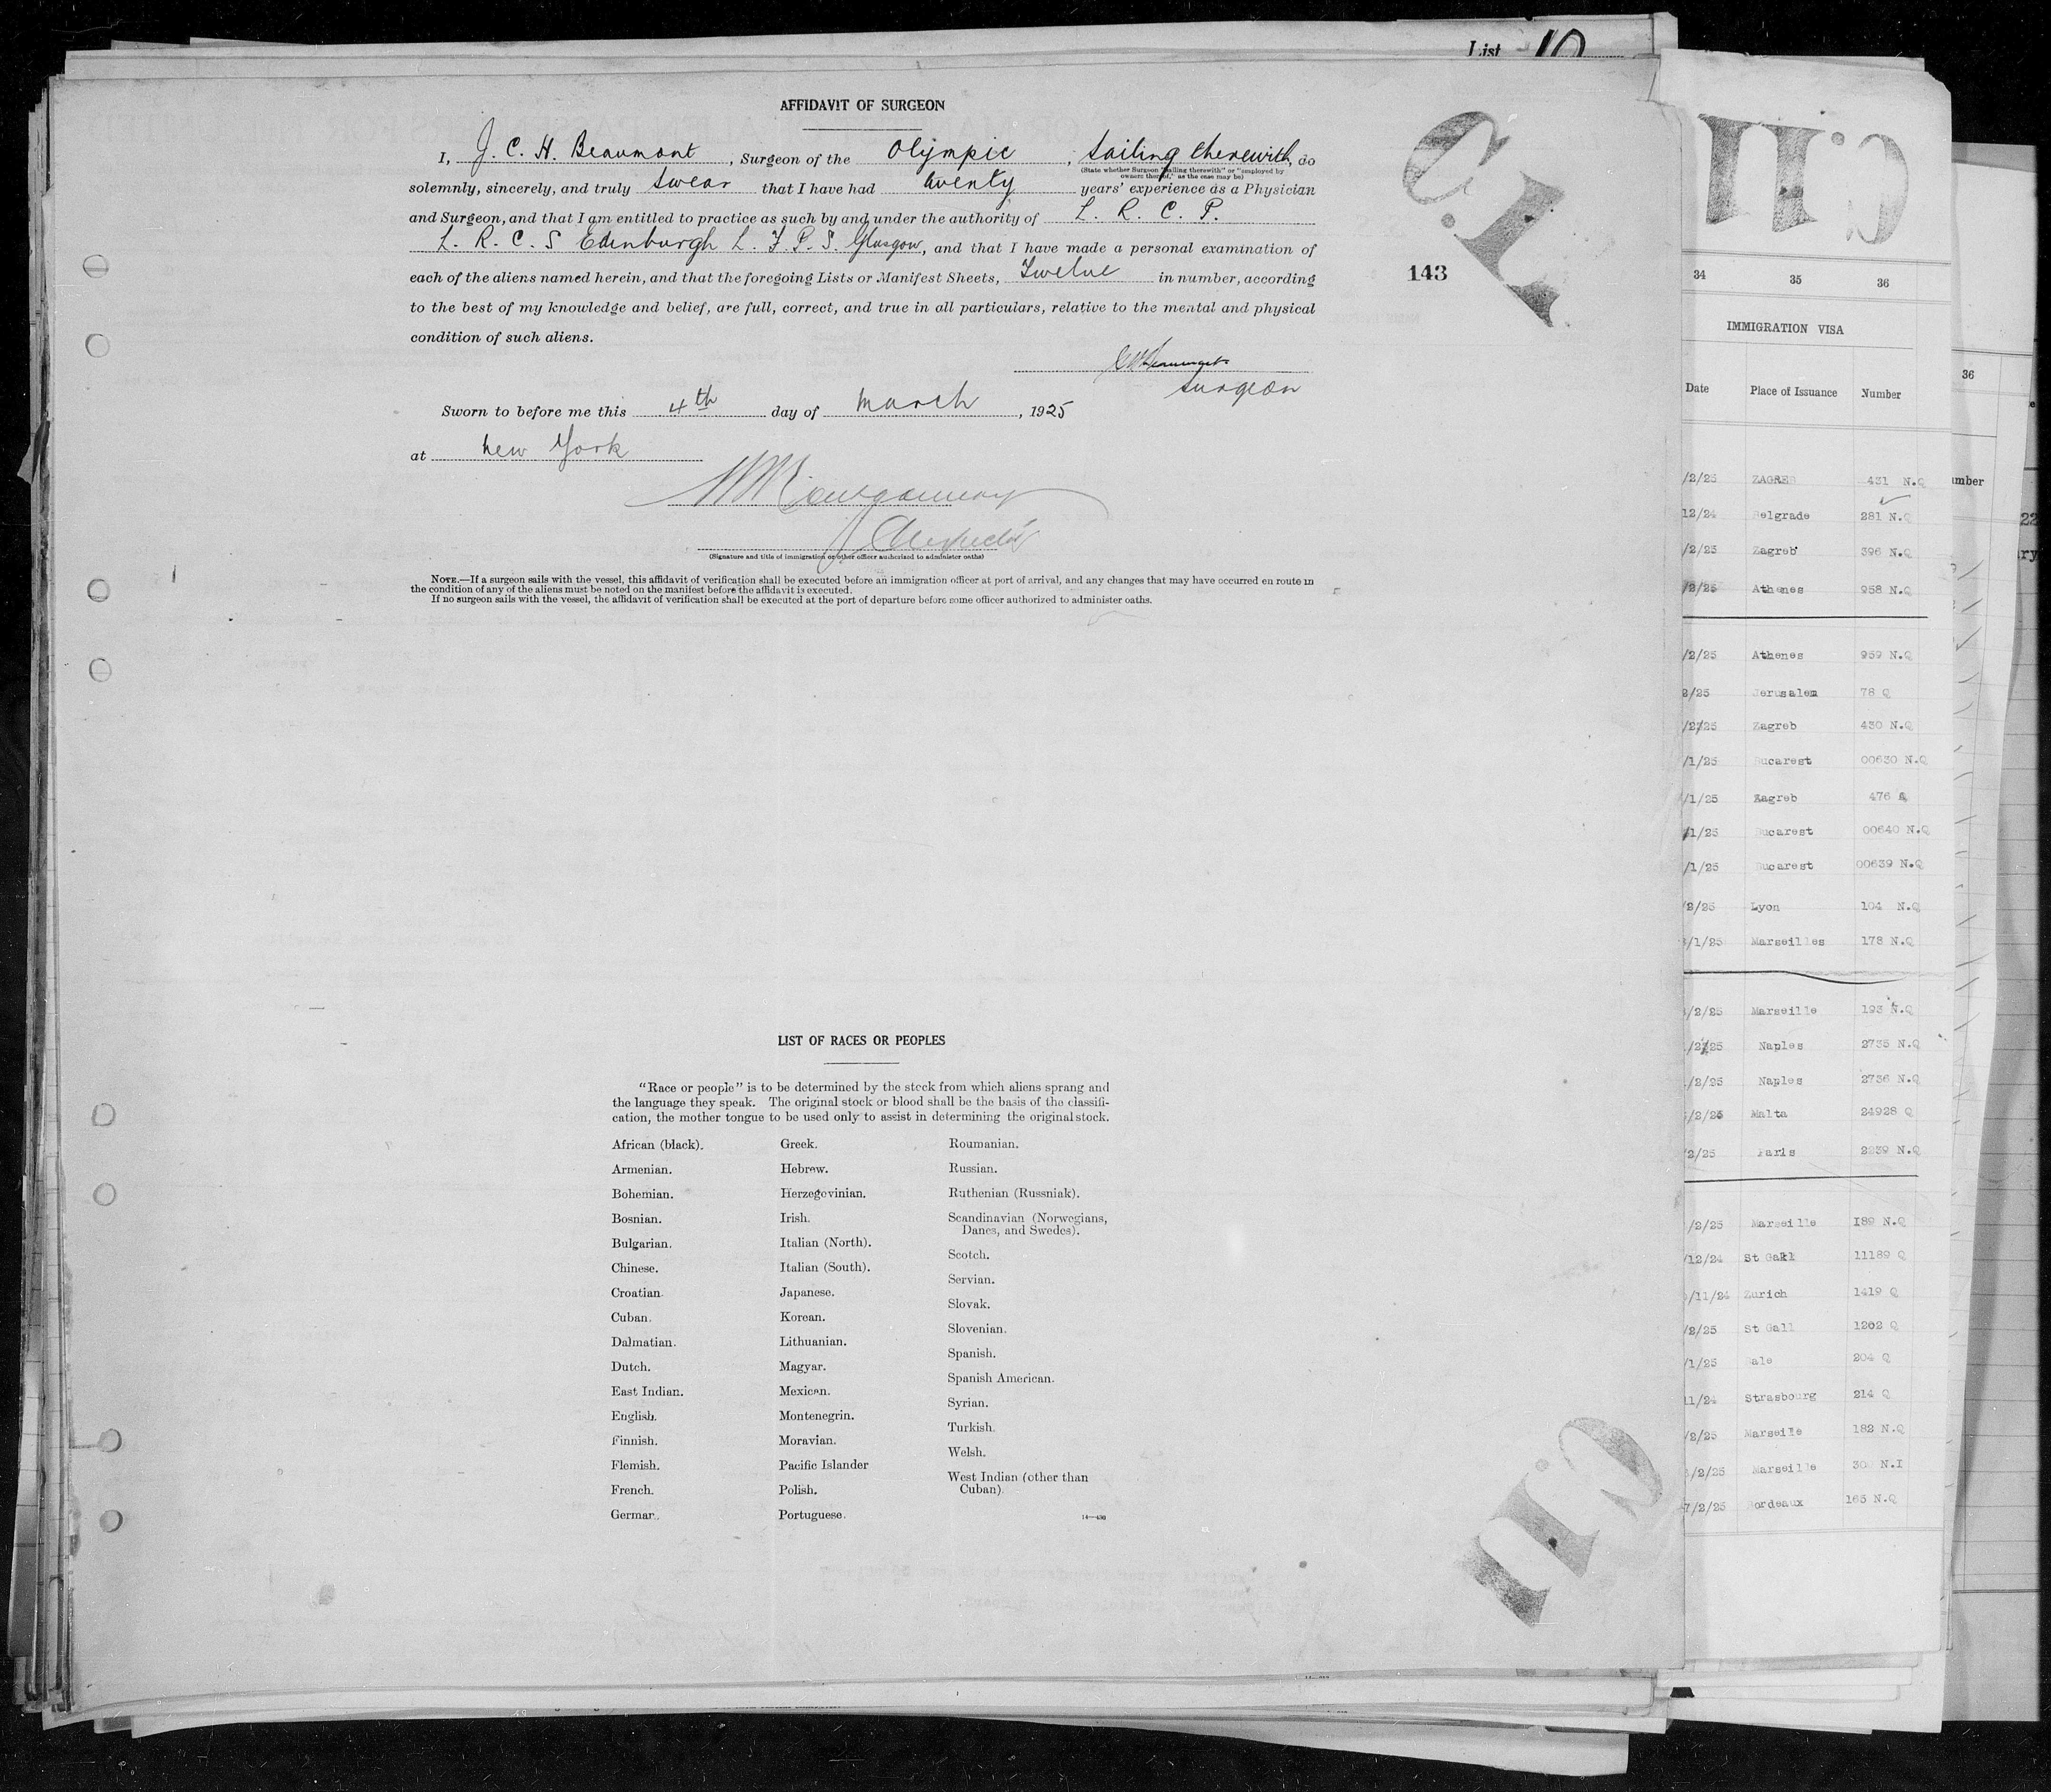 List 10
AFFIDAVIT OF SURGEON
I, J. C. H. Beaumont, Surgeon of the Olympic, sailing therewith, do
(State whether Surgeon "sailing therewith" or "employed by
owners thereof," as the case may be)
solemnly, sincerely, and truly swear that I have had twenty years' experience as a Physician
and Surgeon, and that I am entitled to practice as such by and under the authority of L. R. C. P.
L. R. C. S Edinburgh L. F. P. S. Glasgow, and that I have made a personal examination of
each of the aliens named herein, and that the foregoing Lists or Manifest Sheets, Twelve in number, according
to the best of my knowledge and belief, are full, correct, and true in all particulars, relative to the mental and physical
condition of such aliens.
143
Surgeon
Sworn to before me this 4th day of March, 1925
at New York
Montgomery
(Signature and title of immigration or other officer authorized to administer oaths)
NOTE.—If a surgeon sails with the vessel, this affidavit of verification shall be executed before an immigration officer at port of arrival, and any changes that may have occurred en route in
the condition of any of the aliens must be noted on the manifest before the affidavit is executed.
If no surgeon sails with the vessel, the affidavit of verification shall be executed at the port of departure before some officer authorized to administer oaths.
LIST OF RACES OR PEOPLES
"Race or people" is to be determined by the stock from which aliens sprang and
the language they speak. The original stock or blood shall be the basis of the classifi-
cation, the mother tongue to be used only to assist in determining the original stock.
African (black).
Armenian.
Bohemian.
Bosnian.
Bulgarian.
Chinese.
Croatian.
Cuban.
Dalmatian.
Dutch.
East Indian.
English.
Finnish.
Flemish.
French.
German.
Greek.
Hebrew.
Herzegovinian.
Irish.
Italian (North).
Italian (South).
Japanese.
Korean.
Lithuanian.
Magyar.
Mexican.
Montenegrin.
Moravian.
Pacific Islander
Polish.
Portuguese.
Roumanian.
Russian.
Ruthenian (Russniak).
Scandinavian (Norwegians,
Danes, and Swedes).
Scotch.
Servian.
Slovak.
Slovenian.
Spanish.
Spanish American.
Syrian.
Turkish.
Welsh.
West Indian (other than
Cuban).
14—430
34 35 36
IMMIGRATION VISA
Date Place of Issuance Number
/2/25 ZAGREB 431 N.Q
12/24 Belgrade 281 N.Q
/2/25 Zagreb 396 N.Q
/2/25 Athenes 958 N.Q
/2/25 Athenes 959 N.Q
2/25 Jerusalem 78 Q
/2/25 Zagreb 430 N.Q
/1/25 Bucarest 00630 N.Q
/1/25 Zagreb 476
/1/25 Bucarest 00640 N.Q
/1/25 Bucarest 00639 N.Q
/2/25 Lyon 104 N.Q
/1/25 Marseilles 178 N.Q
/2/25 Marseille 193 N.Q
/2/25 Naples 2735 N.Q
/2/25 Naples 2736 N.Q
/2/25 Malta 24928 Q
/2/25 Paris 2239 N.Q
/2/25 Marseille 189 N.Q
/12/24 St Gall 11189 Q
/11/24 Zurich 1419 Q
/2/25 St Gall 1202 Q
/1/25 ale 204 Q
11/24 Strasbourg 214 Q
/2/25 Marseile 182 N.Q
/2/25 Marseille 30 N.I
7/2/25 Bordeaux 165 N.Q
36
umber
22
ry